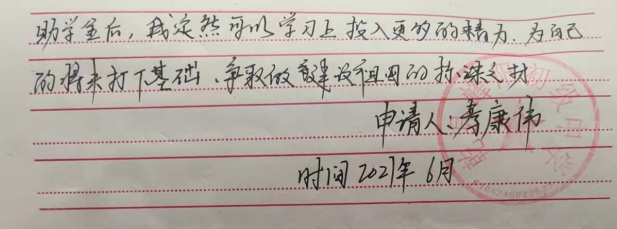 助学金后，我定然可以学习上投入更多的精力，为自己
的将来打下基础，争取做建设祖国的栋梁之材
申请人：寿康伟
时间2021年6月
初级中学